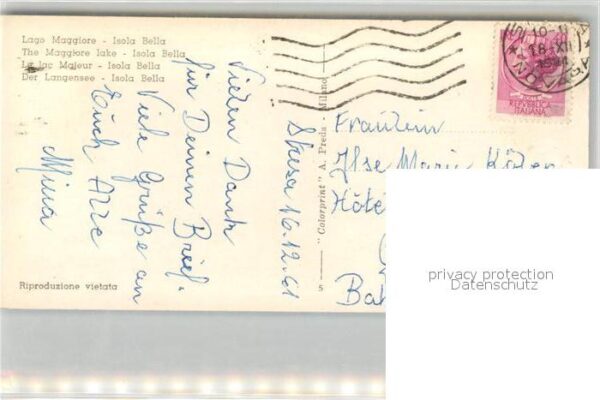 Lago Maggiore - Isola Bella
The Maggiore lake - Isola Bella
Le lac Majeur - Isola Bella
Der Langensee - Isola Bella
Stresa 16.12.61
Vielen Dank
für Deinen Brief.
Viele Grüße an
Euch Alle
Mina
Riproduzione vietata
"Colorprint" A. Preda - Milano
S
Fräulein
Ilse Marie
Hôte
Bah
REPUBBLICA
ITALIANA
privacy protection
Datenschutz